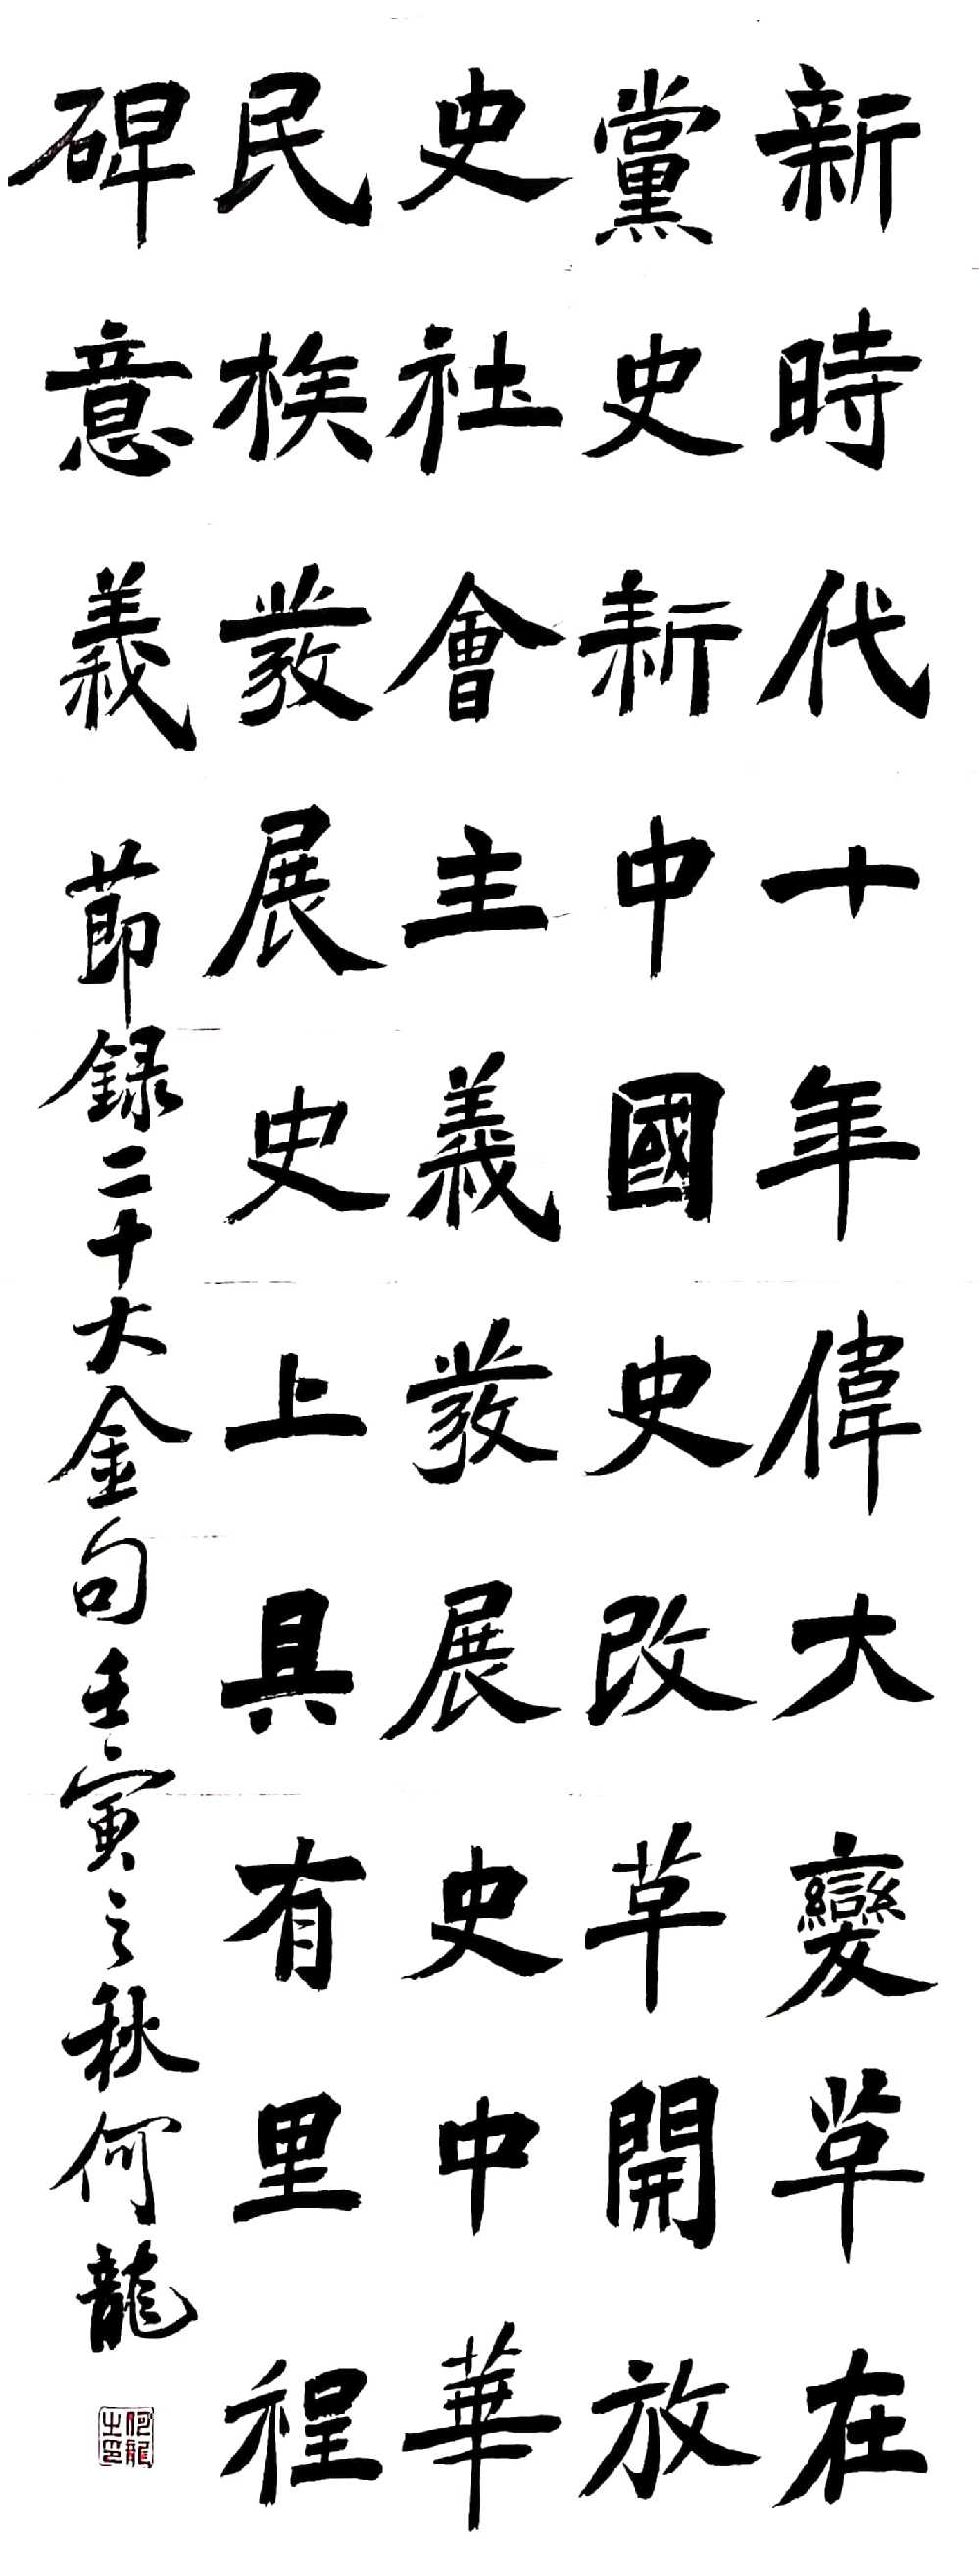 新時代十年偉大變革在
黨史新中國史改革開放
史社會主義發展史中華
民族發展史上具有里程
碑意義 節録二十大金句壬寅之秋何龍
何龍之印